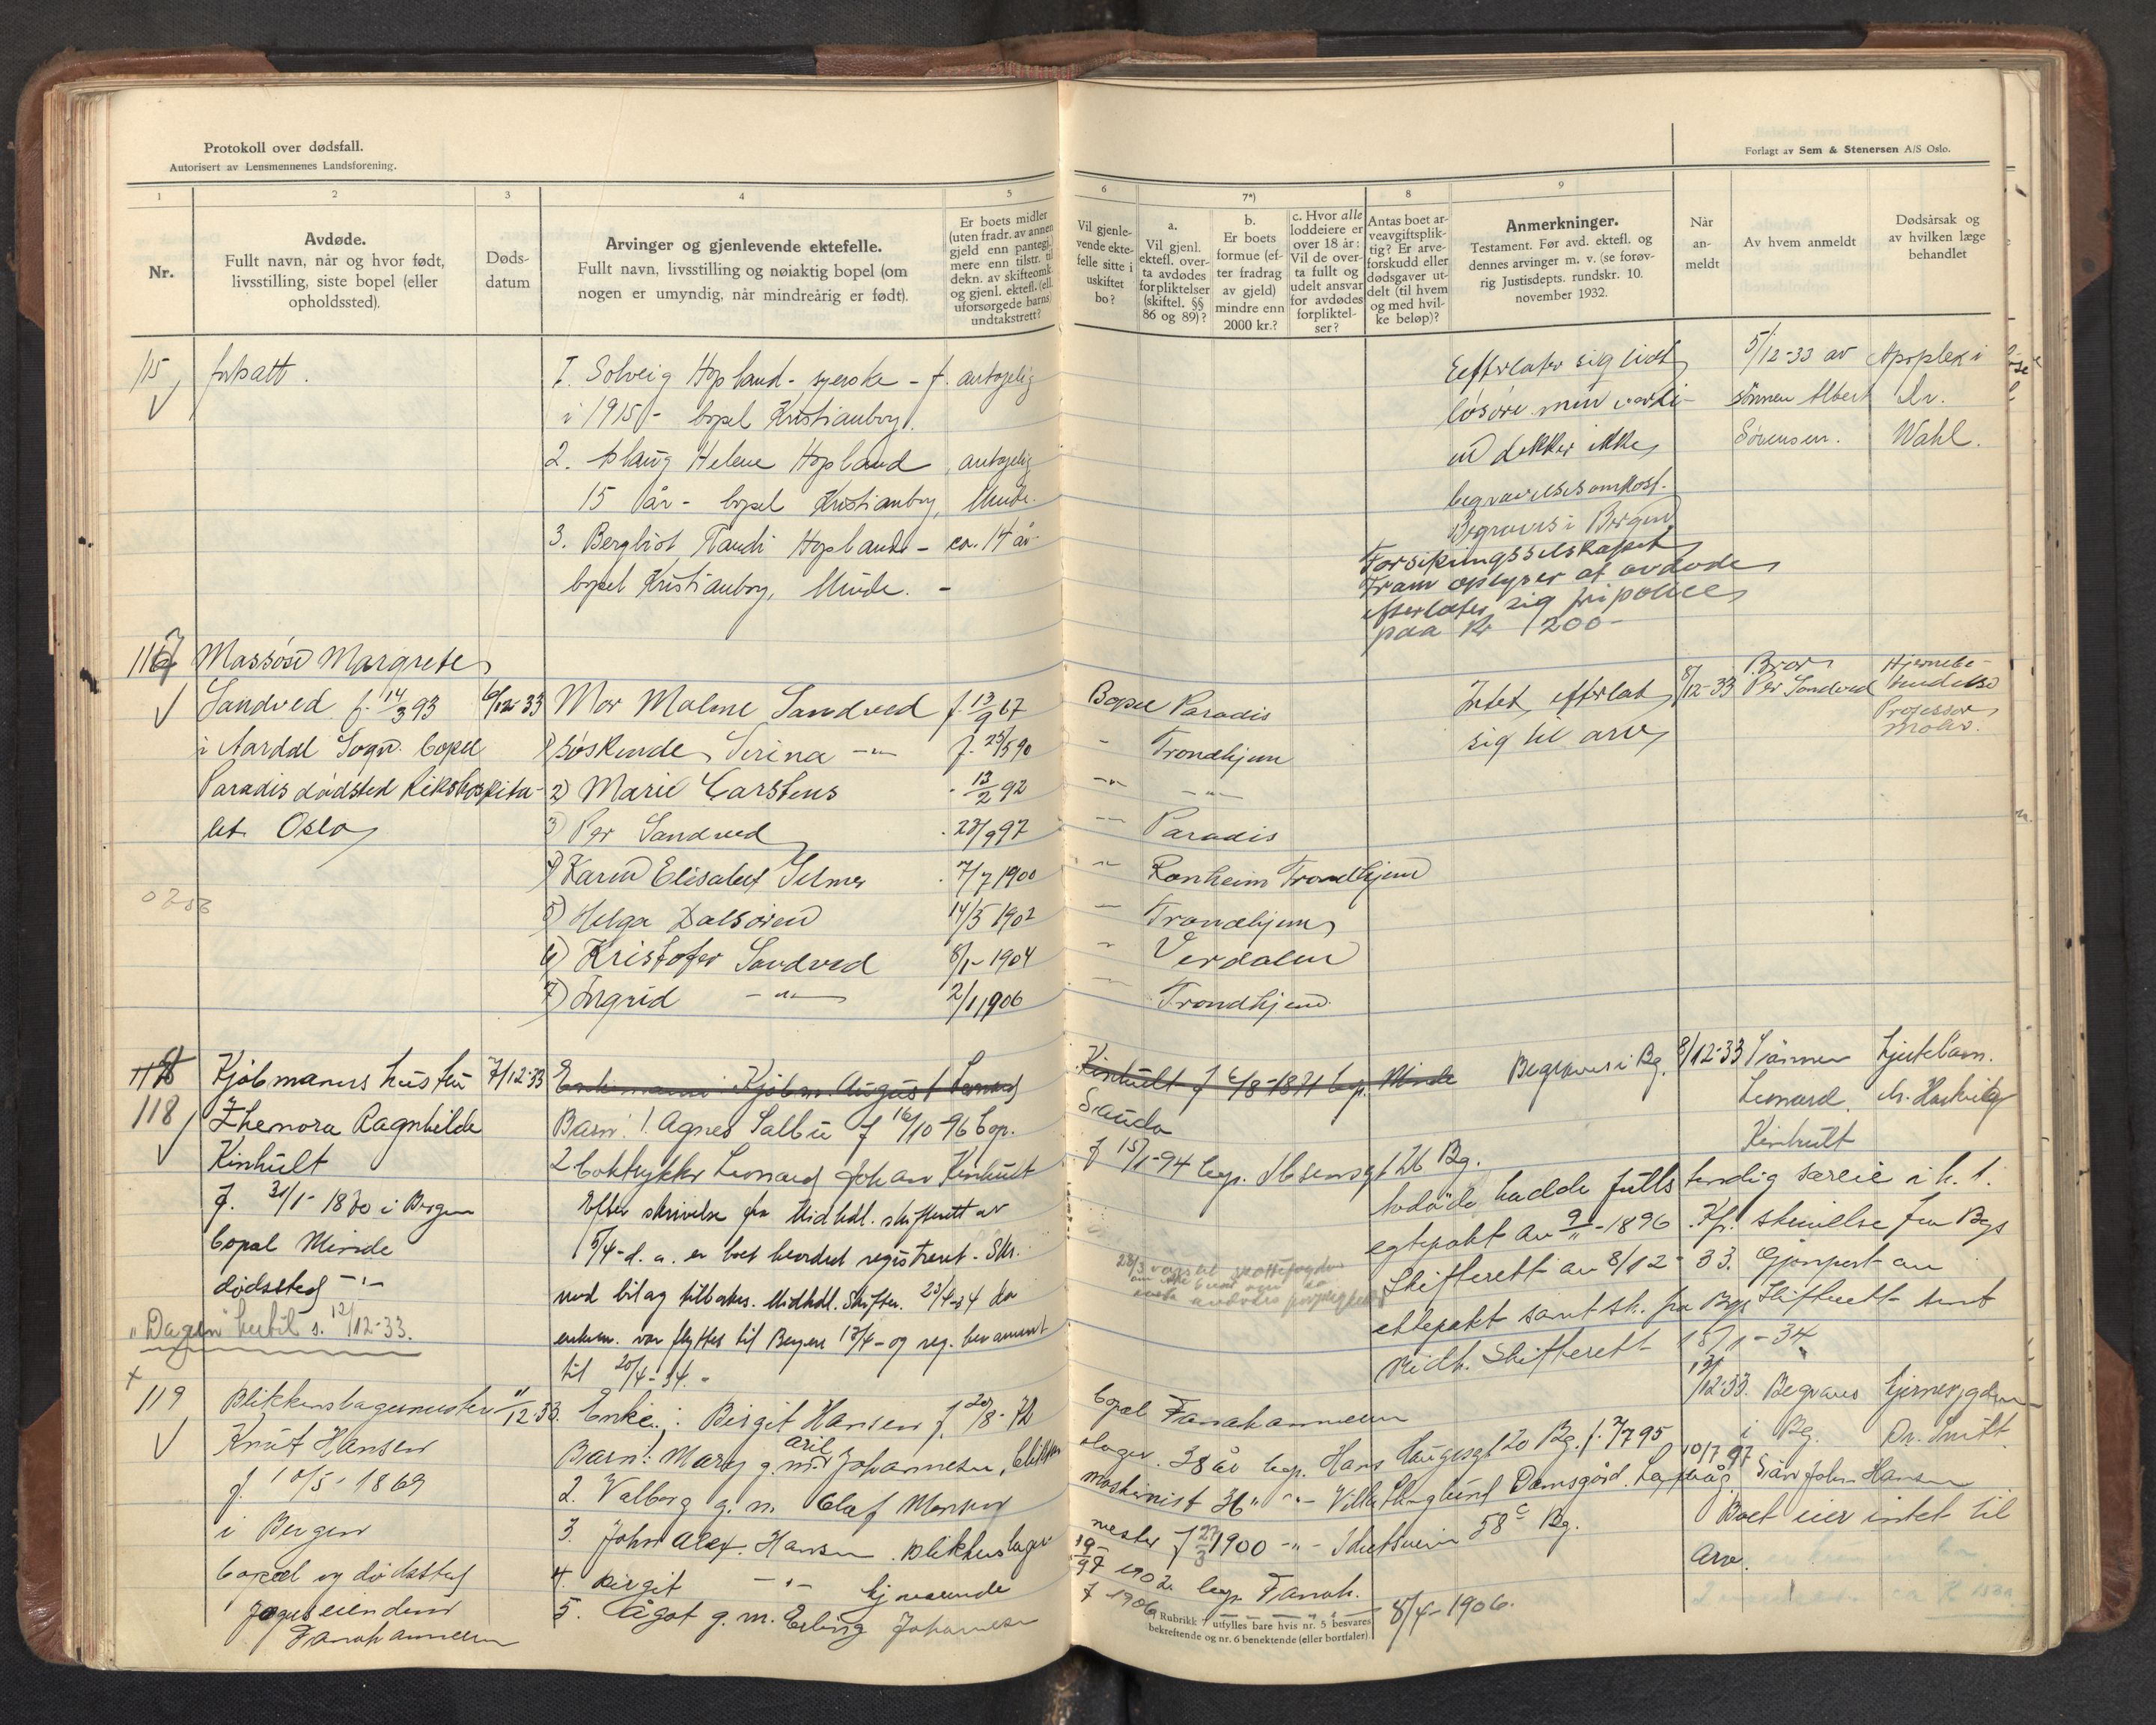 Protokoll over dødsfall.
Autorisert av Lensmennenes Landsforening.
Forlagt av Sem & Stenersen A/S Oslo.
1
2
3
4
5
6
7*)
8
9
Nr.
Avdøde.
Fullt navn, når og hvor født,
livsstilling, siste bopel (eller
opholdssted).
Døds-
datum
Arvinger og gjenlevende ektefelle.
Fullt navn, livsstilling og nøiaktig bopel (om
nogen er umyndig, når mindreårig er født).
Er boets midler
(uten fradr. av annen
gjeld enn pantegj.)
mere enn tilstr. til
dekn. av skifteomk.
og gjenl. ektefl. (ell.
uforsørgede barns)
undtakstrett?
Vil gjenle-
vende ekte-
felle sitte i
uskiftet
bo?
a.
Vil gjenl.
ektefl. over-
ta avdødes
forpliktelser
(skiftel. §§
86 og 89)?
b.
Er boets
formue (ef-
ter fradrag
av gjeld)
mindre enn
2000 kr.?
c. Hvor alle
loddeiere er
over 18 år:
Vil de over-
ta fullt og
udelt ansvar
for avdødes
forpliktel-
ser?
Antas boet ar-
veavgiftsplik-
tig? Er arve-
forskudd eller
dødsgaver ut-
delt (til hvem
og med hvil-
ke beløp)?
Anmerkninger.
Testament. Før avd. ektefl. og
dennes arvinger m. v. (se forøv-
rig Justisdepts. rundskr. 10.
november 1932.
Når
an-
meldt
Av hvem anmeldt
Dødsårsak og
av hvilken læge
behandlet
115 fortsatt.
1. Solveig Hopland - syerske - f. antagelig
i 1915 - bopel Kristianborg.
2. Aslaug Helene Hopland, antagelig
15 år - bopel Kristianborg, Minde.
3. Bergliot Randi Hopland - ca. 14 år
bopel Kristianborg, Minde. -
Efterlater sig lidt
løsøre men verdi-
en dekker ikke
begravelsesomkost.
Begraves i Bergen
Forsikringsselskapet
Fram oplyser at avdøde
efterlater sig fripolice
paa Kr 1200-
5/12-33 av
sønnen Albert
Sørensen.
Apoplexi
Dr.
Wahl.
117
Massøse Margrete
Sandved f. 14/3 93
i Aardal Sogn. bopel
Paradis dødsted Rikshospita-
let. Oslo
6/12-33
Mor Malene Sandved f. 13/9 67
1) Søskende Serina -"- f. 25/5 90
2) Marie Carstens - 13/2 92
3) Per Sandved . 23/9 97
4) Karen Elisabet Selmer . 7/7 1900
5) Helga Dalsøren 14/5 1902
6) Kristofer Sandved 8/1- 1904
7) Ingrid -"- 2/1 1906
Bopel Paradis
" Trondhjem
-"- -"-
-"- Paradis
" Ranheim Trondhjem
- Trondhjem
" Verdalen
- Trondhjem
Intet efterlat
sig til arv
8/12-33
Bror
Per Sandved
Hjernebe-
tendelse
Professor
Møller.
118
Kjøbmanns hustru
Elenora Ragnhilde
Kinhult
f. 31/1- 1870 i Bergen
bopel Minde
dødssted -"-
"Dagen" hertil s. 12/12-33.
7/12-33
Enkemann: Kjøbm. August Leonard
Kinhult f 6/8-1871 bop. Minde
Barn: 1. Agnes Salbu f 16/10 96 bop.
Sauda
2 Boktrykker Leonard Johan Kinhult
f 15/1-94 bop. Ibsensgt 26 Bg.
Efter skrivelse fra Midhdl. skifterett av
5/4- d.a. er boet bevordret registreret. Skr.
med bilag tilbakes. Midhdl. Skifter. 23/4-34 da
enkem. var flyttet til Bergen 13/4- og reg. berammet
til 20/4-34.
28/3
Begraves i Bg.
Avdøde hadde fullstendig særeie i h. t.
egtepakt av 9/11-1896. Kfr. skrivelse fra Bgs
Skifterett av 8/12-33. Gjenpart av
ektepakt samt sk. fra Bgs Skifterett sendt
Midh. Skifterett 15/1-34
8/12-33
Sønnen
Leonard
Kinhult
hjertelam.
119
Blikkenslagermester
Knut Hansen
f. 10/5- 1869
i Bergen
bopæl og dødssted
Fanahammeren
11/12-33.
Enke: Birgit Hansen f. 20/8- 72
bopel Fanahammeren
Barn: 1. Mary g.m. Aril Johannesen, blikken-
slager. 38 år bop. Hans Haugesgt 20 Bg. f. 7/7 95
2. Valborg g. m. Olaf Monsen
maskinist 36 " -"- Villa Skoglund Damsgård. Laxevåg 10/7 97
3. John Alex. Hansen. Blikkenslager-
mester f 27/3 1900 -"- Idrettsveien 58 c Bg.
4. Birgit -"- hjemmeværende
1902 bop. Fanah.
5. Ågot g. m. Erling Johannesen
f 1906 8/4-1906.
13/12-33.
Begraves
i Bg.
Søn John Hansen
Boet eier intet til
Arv.
Dr. Smitt
*) Rubrikk 7 utfylles bare hvis nr. 5 besvares
bekreftende og nr. 6 benektende (eller bortfaler).